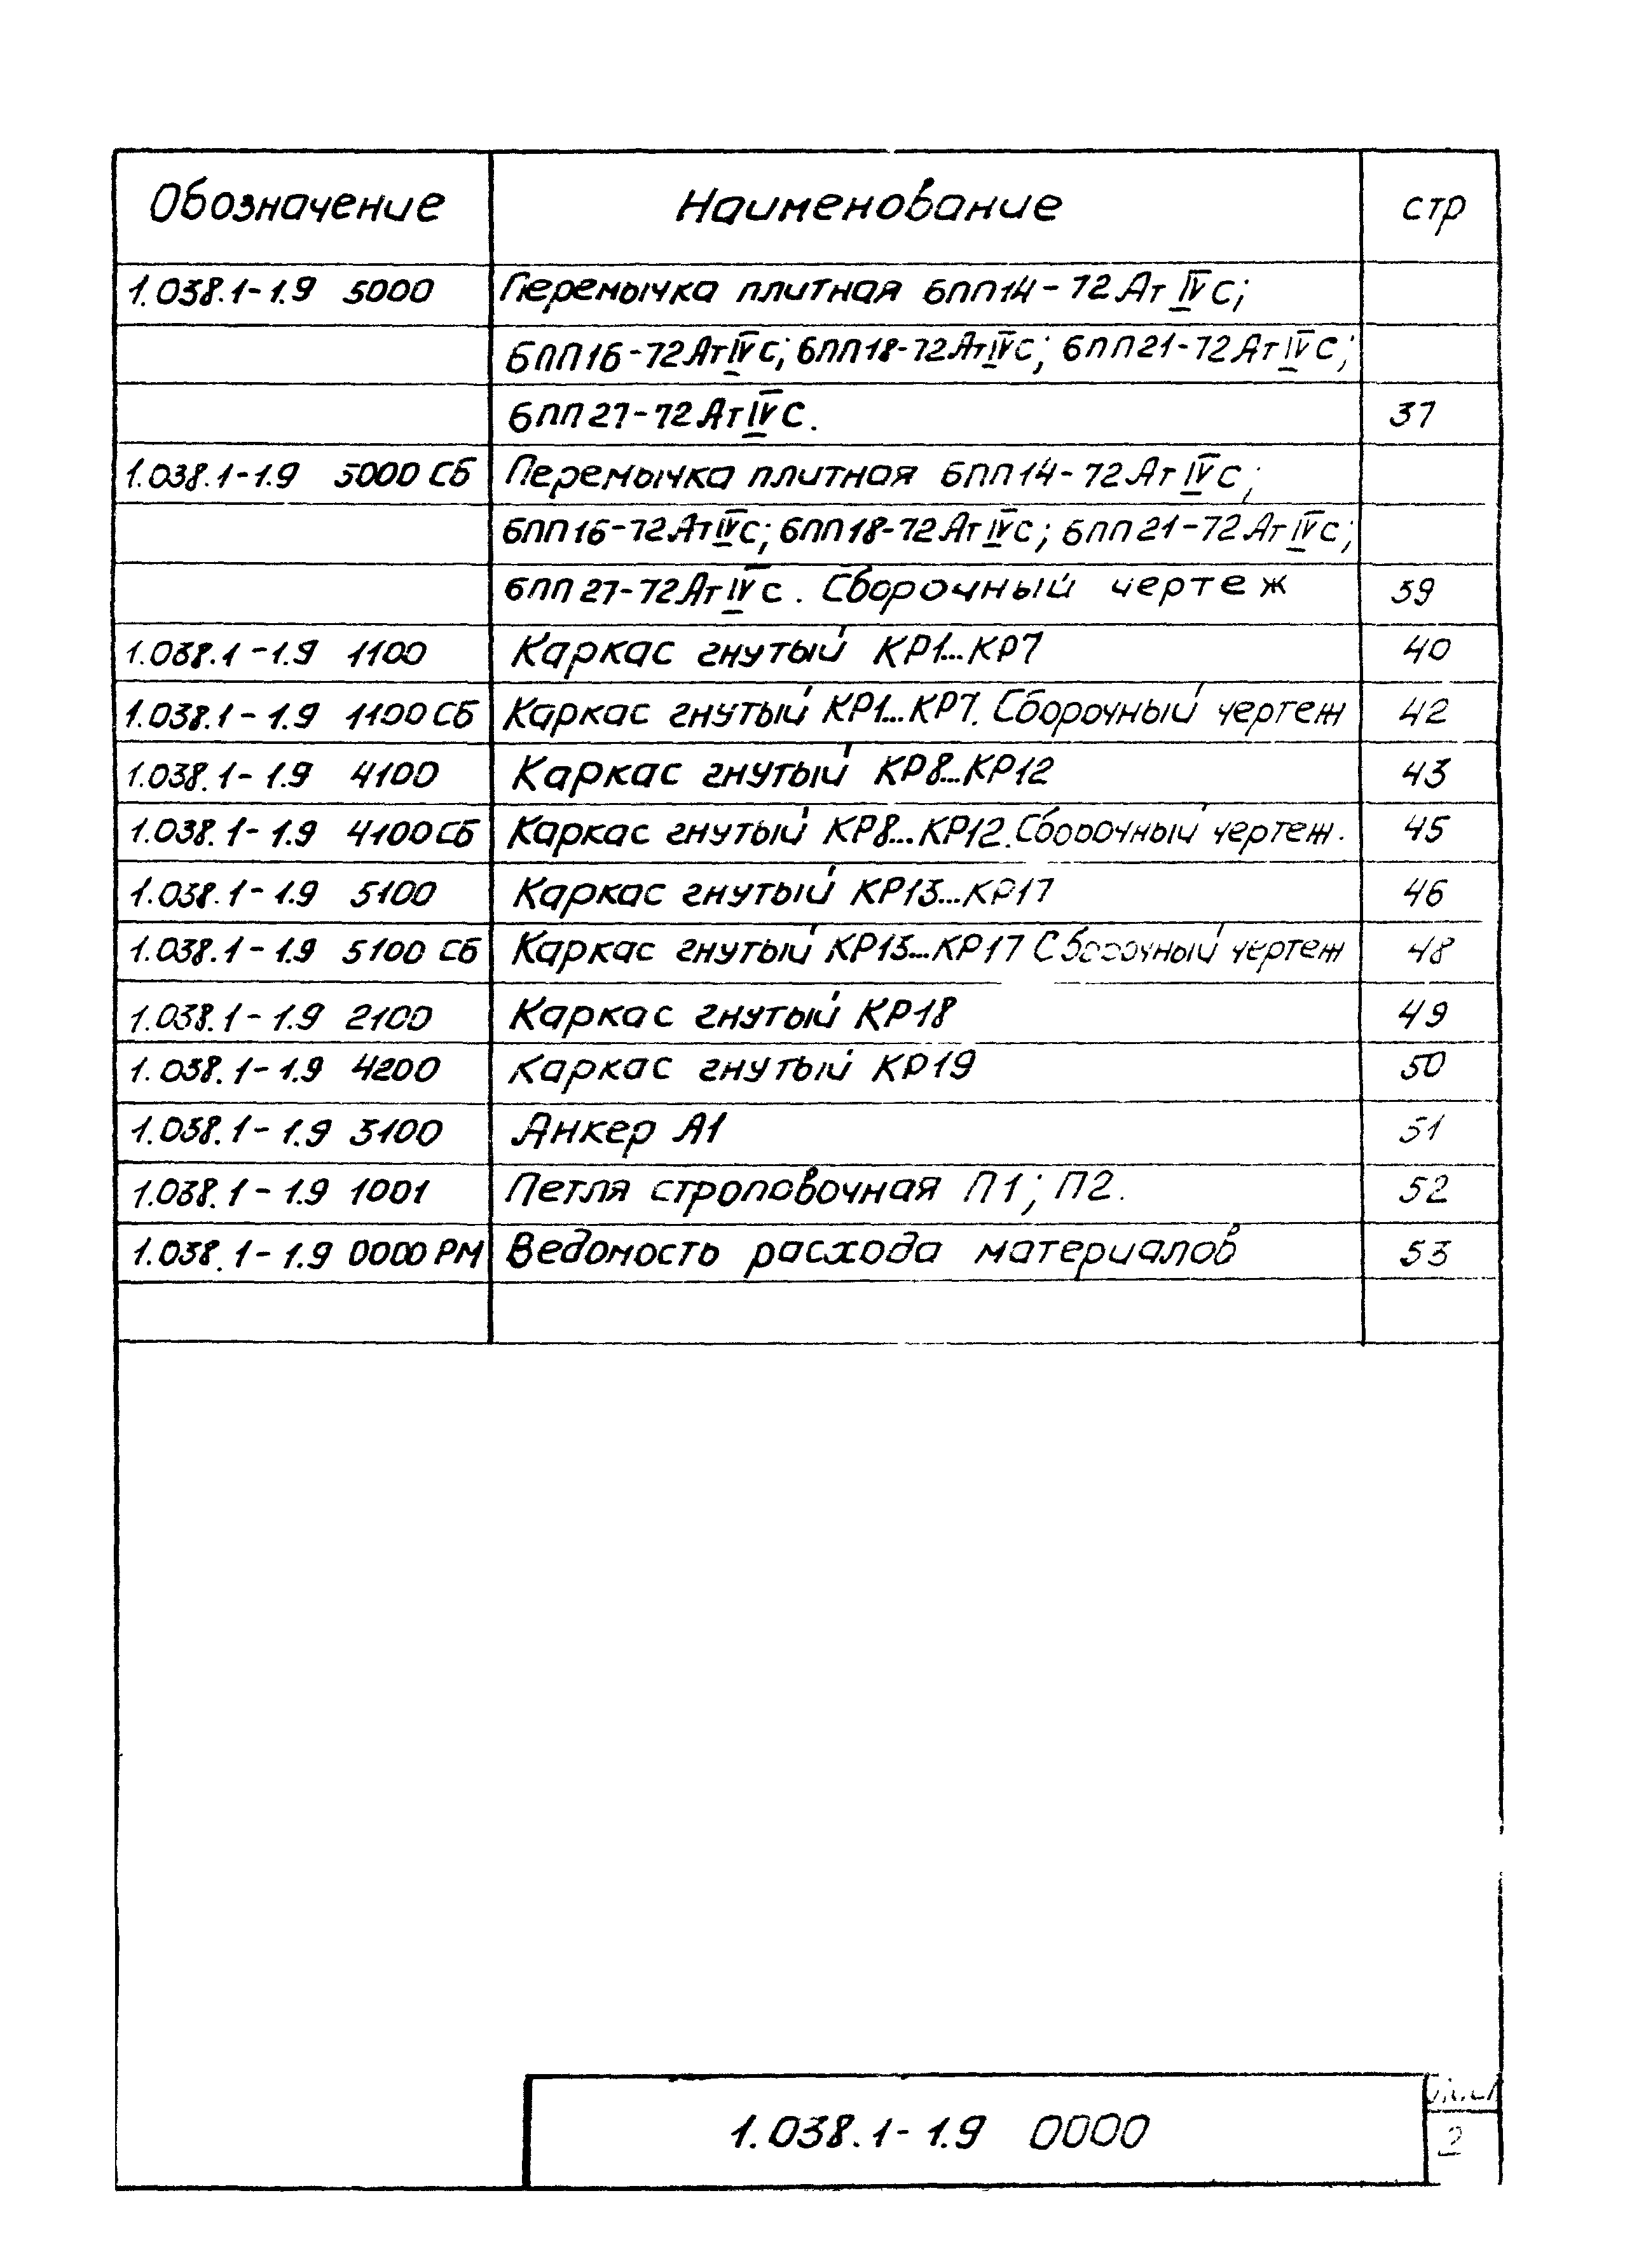 Обозначение Наименование стр
1.038.1-1.9 5000 Перемычка плитная 6ПП14-72АтIVС;
6ПП16-72АтIVС; 6ПП18-72АтIVС; 6ПП21-72АтIVС;
6ПП27-72АтIVС. 37
1.038.1-1.9 5000 СБ Перемычка плитная 6ПП14-72АтIVС;
6ПП16-72АтIVС; 6ПП18-72АтIVС; 6ПП21-72АтIVС;
6ПП27-72АтIVС. Сборочный чертеж 39
1.038.1-1.9 1100 Каркас гнутый КР1...КР7 40
1.038.1-1.9 1100 СБ Каркас гнутый КР1...КР7. Сборочный чертеж 42
1.038.1-1.9 4100 Каркас гнутый КР8...КР12 43
1.038.1-1.9 4100 СБ Каркас гнутый КР8...КР12. Сборочный чертеж. 45
1.038.1-1.9 5100 Каркас гнутый КР13...КР17 46
1.038.1-1.9 5100 СБ Каркас гнутый КР13...КР17 Сборочный чертеж 48
1.038.1-1.9 2100 Каркас гнутый КР18 49
1.038.1-1.9 4200 Каркас гнутый КР19 50
1.038.1-1.9 3100 Анкер А1 51
1.038.1-1.9 1001 Петля строповочная П1; П2. 52
1.038.1-1.9 0000 РМ Ведомость расхода материалов 53
1.038.1-1.9 0000
2